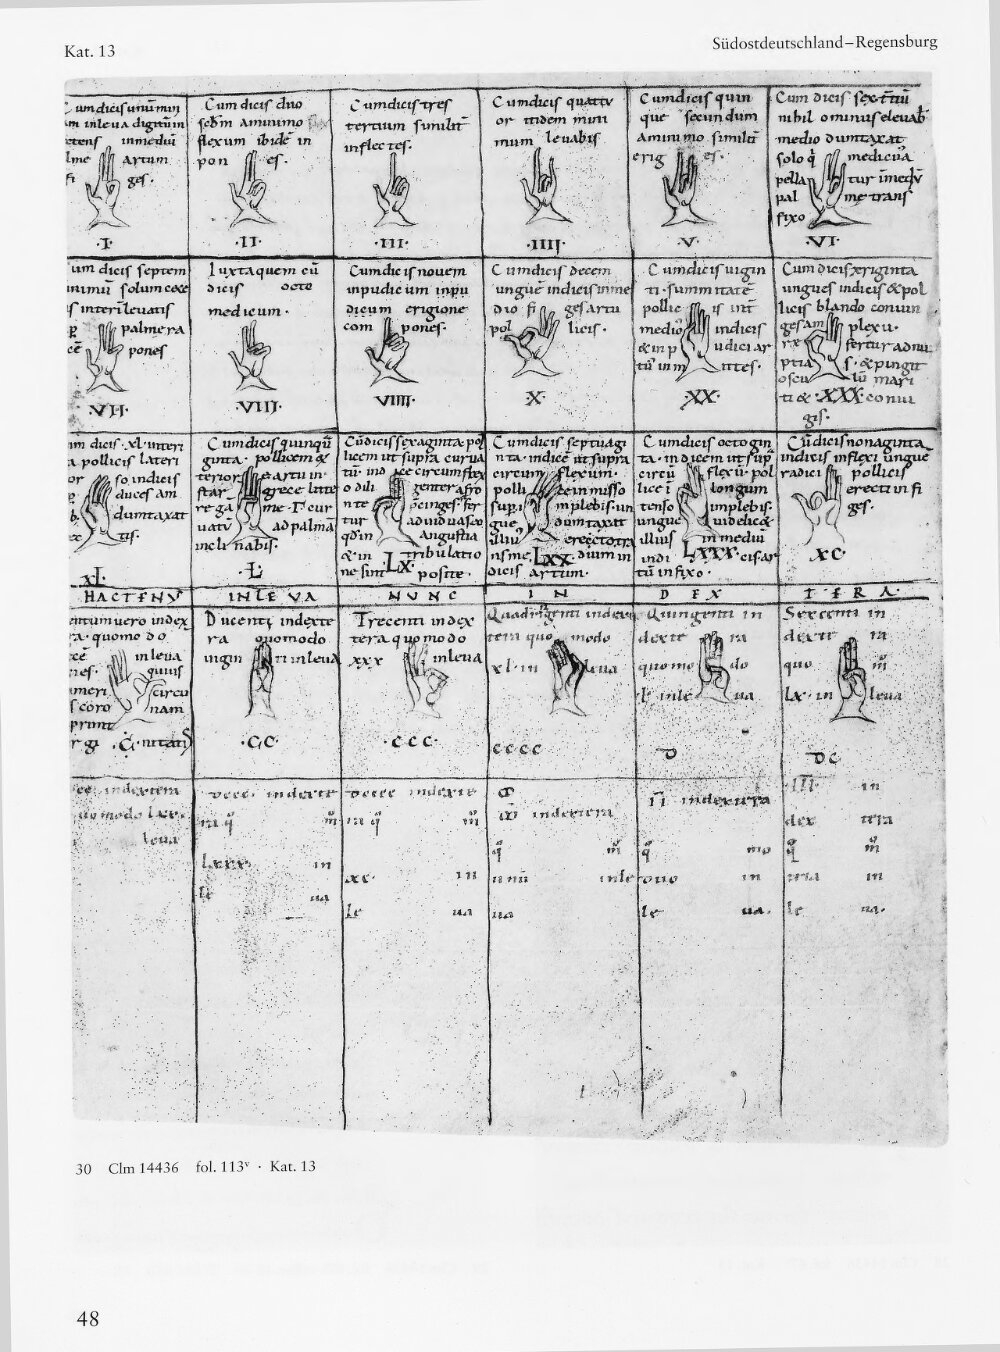 Kat. 13
Südostdeutschland–Regensburg
um dicis unū min
m in leua digitū in
ctens in mediū
lme artum
fi ges·
·I·
Cum dicis duo
sc̄dm a minimo
flexum ibidē in
pon es·
·II·
Cum dicis tres
tertium similit̄
inflectes·
·III·
Cum dicis quattu
or itidem mini
mum leuabis
·IIII·
Cum dicis quin
que secundum
a minimo similit̄
erig es·
·V·
Cum dicis sex t̄tiū
nihilominus eleuab̄
medio dumtaxat
solo q̄ medicus
pella tur in mediū
pal me trans
fixo
·VI·
um dicis septem
minimū solum
s interī leuatis
palme ra
cē pones
·VII·
Iuxta quem cū
dicis octo
medicum·
·VIII·
Cum dicis nouem
inpudicum inpu
dicum erigione
com pones·
·VIIII·
Cum dicis decem
unguē indicis in me
dio fi ges artu
pol licis·
·X·
Cum dicis uigin
ti· summitatē
pollic is int̄
medios indicis
& in p udici ar
tū inm ittes·
·XX·
Cum dicis xxx ginta
ungues indicis & pol
licis blando coniun
ges am plexu·
fertur ad nu
ptia s· & pingit
oscu lū mari
ti & ·XXX· coniu
gis·
m dicis ·xl· interi
a pollicis lateri
or so indicis
duces am
b· dumtaxat
ec tis·
xl·
Cum dicis quinqū
ginta· pollicem &
terior e artu in
star grece litte
re gā me ·Γ· cur
uatū ad palmā
incli nabis·
·L·
Cū dicis sexaginta pol
licem ut supra curua
tū· ind ice circumflex
o dili genter a fro
nte p̄cinges· fer
tur ad uiduas eo
qd in angustia
& in tribulatio
ne sint LX· posite·
Cum dicis septuagi
nta· indicē ut supra
circum flexum·
polli ce inmisso
sup̄i mplebis· un
gue dumtaxat
illius erecto tra
nsme LXX· dium in
dicis artum·
Cum dicis octogin
ta· indicem ut sup̄
circū flexū· pol
lice i longum
tenso implebis·
ungue uidelice
illius in mediū
indi LXXX· cis ar
tū infixo·
Cū dicis nonaginta
indicis inflexi unguē
radici pollicis
erecti in fi
ges·
XC
HACTENV IN LEVA NVNC IN DEX TERA·
entum uero in dex
ra· quomodo
cē in leua
nes· quiuis
meri circu
s coro nam
prim
r gi ·C· nitatis
Ducenti in dexte
ra quomodo
uigin ti in leua
·CC·
Trecenti in dex
tera quomodo
xxx in leua
·CCC·
Quadringenti in dex
tera quo modo
xl· in leua
CCCC
Quingenti in
dexte ra
quomo do
l· in le ua
D
Sexcenti in
dexte ra
quo m̄
lx· in leua
DC
dcc· in dextera
uo modo lxx·
leua
dccc· in dexte
ra q̄ m̄
lxxx· in
le ua
dcccc in dexte
ra q̄ m̄
xc· in
le ua
in dextera
q̄ m̄
unū in le
ua
II in dextera
q̄ mo
duo in
le ua·
·III· in
dex tera
q̄ m̄
tria in
le ua·
30 Clm 14436 fol. 113v · Kat. 13
48